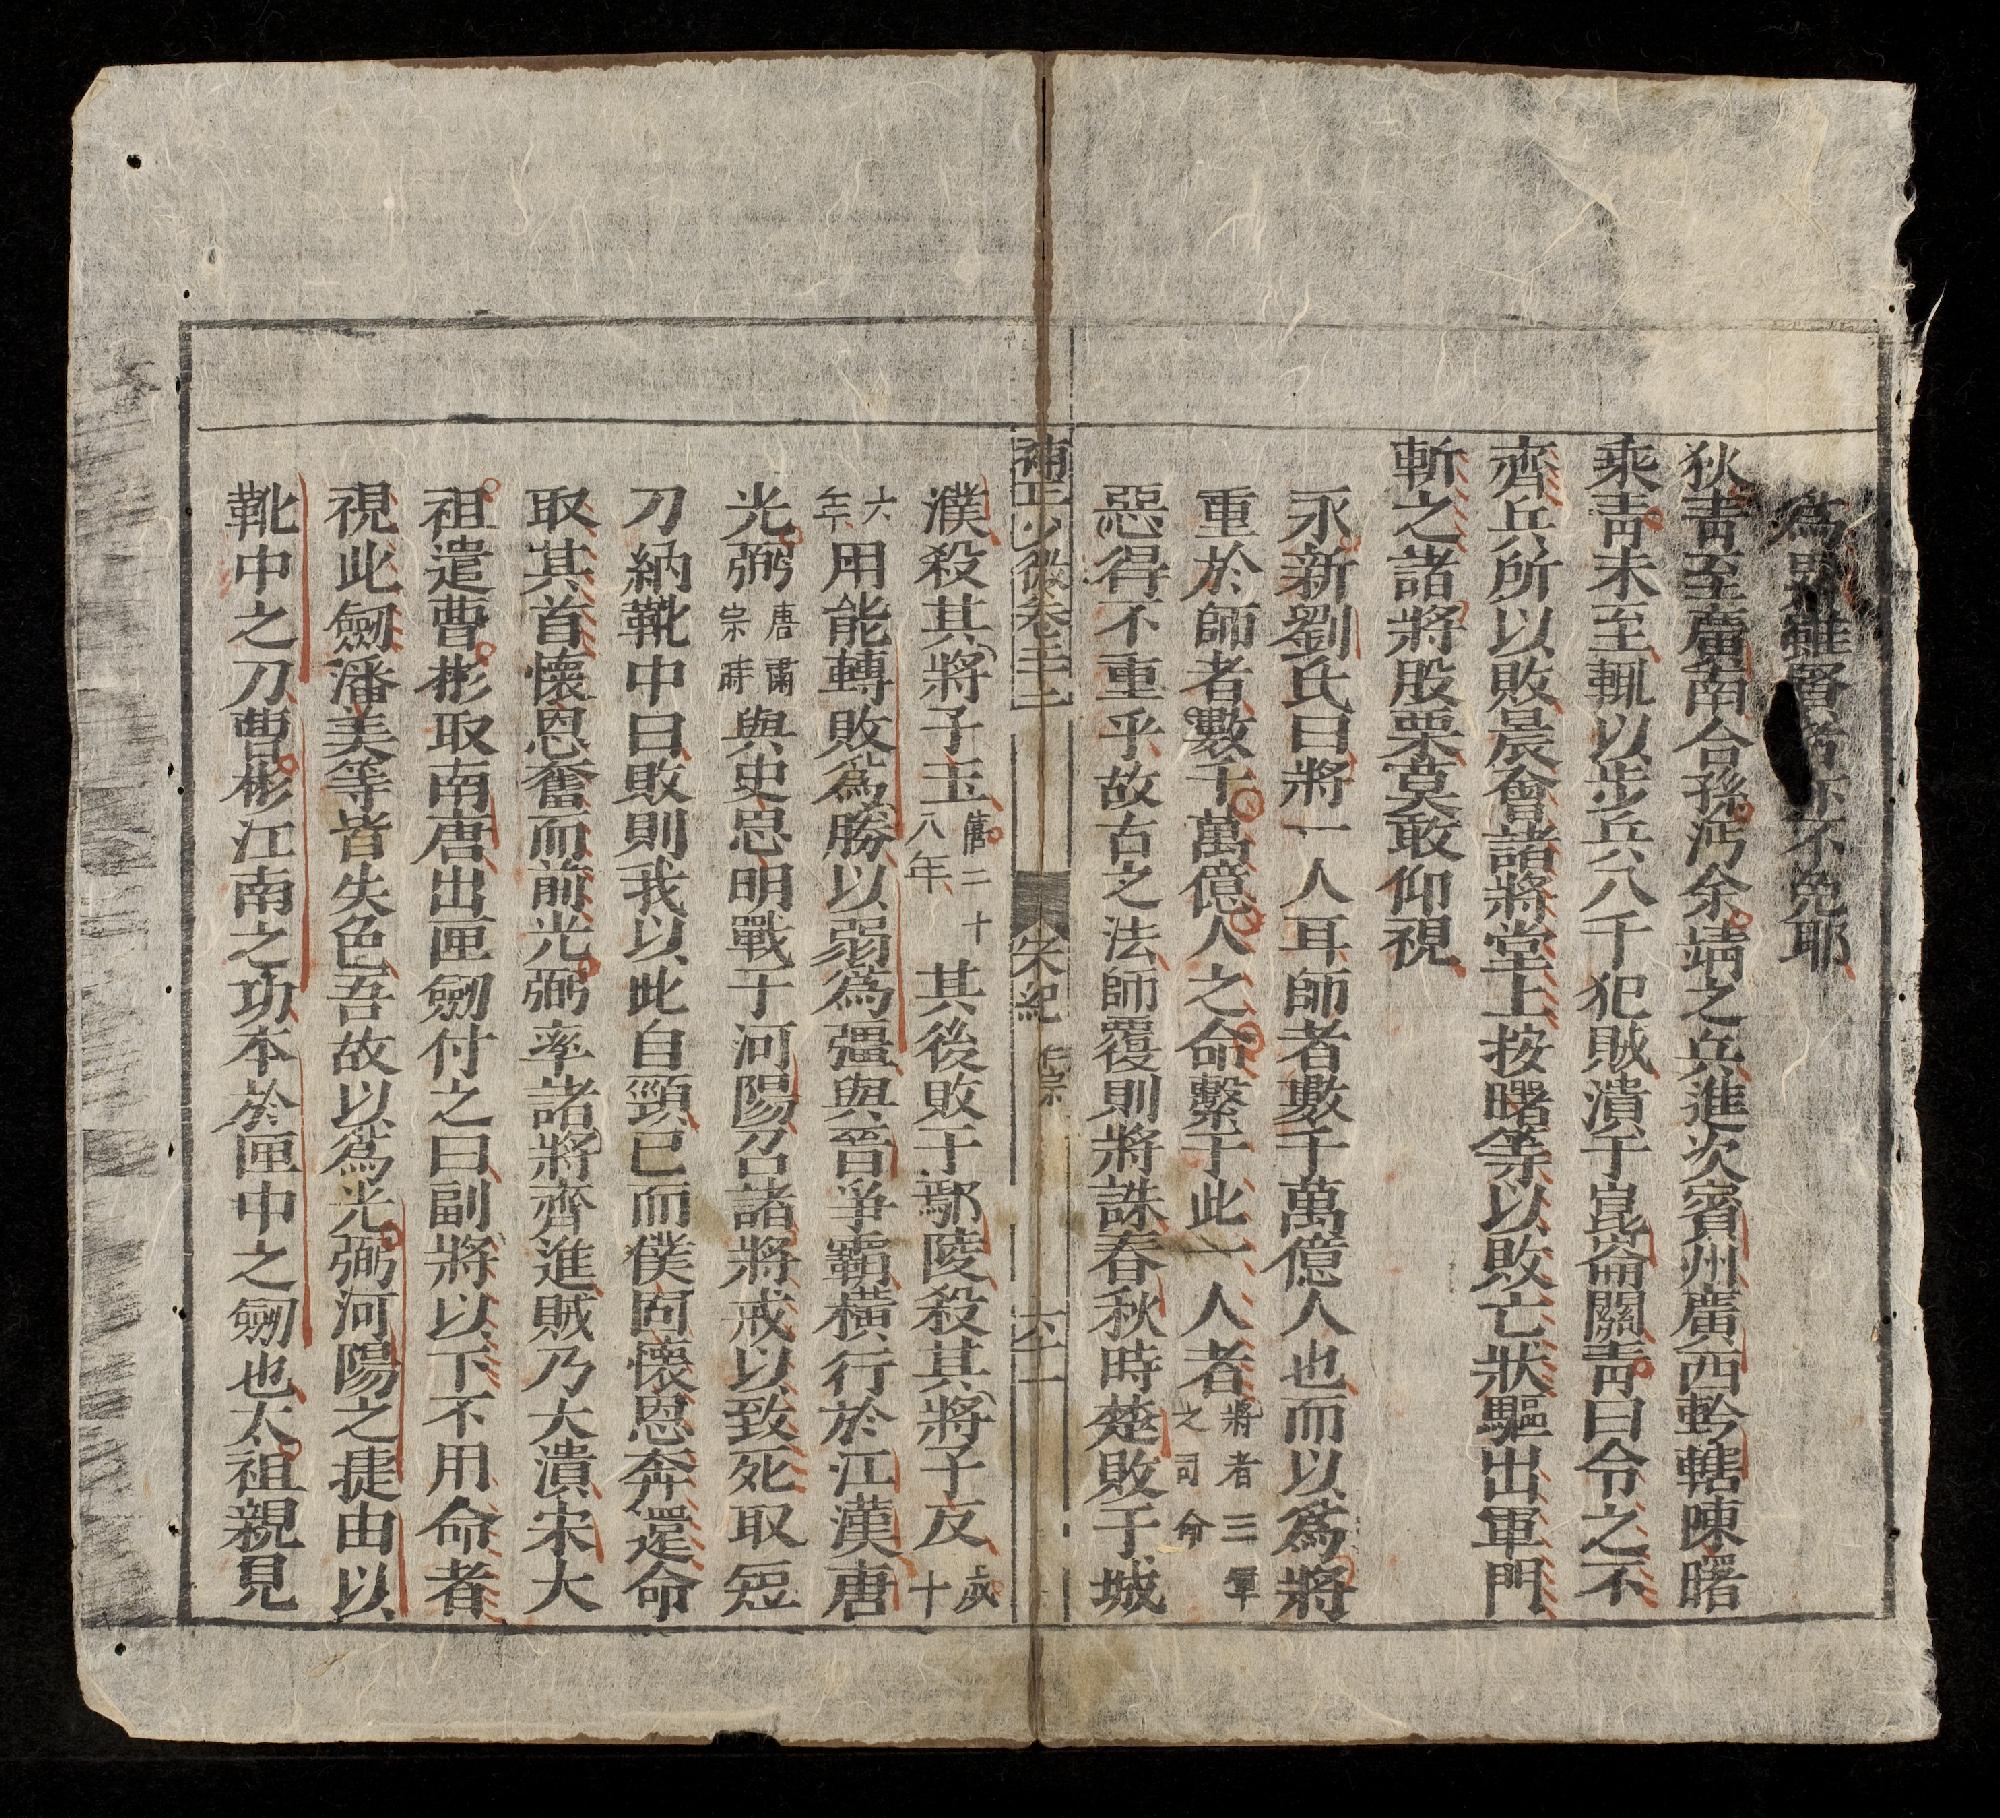 為累雖賢者亦不免耶
狄靑至廣南合孫沔余靖之兵進次賓州廣西鈐轄陳曙
乘靑未至輒以步兵八千犯賊潰于崑崙關靑曰令之不
齊兵所以敗晨會諸將堂上按曙等以敗亡狀驅出軍門
斬之諸將股栗莫敢仰視
永新劉氏曰將一人耳師者數千萬億人也而以爲將
重於師者數千萬億人之命繫于此一人者將者三軍之司命
惡得不重乎故古之法師覆則將誅春秋時楚敗于城
濮殺其將子玉僖二十八年其後敗于鄢陵殺其將子反成十
六年用能轉敗爲勝以弱爲彊與晉爭霸橫行於江漢唐
光弼唐肅宗時與史思明戰于河陽召諸將戒以致死取短
刀納靴中曰敗則我以此自頸已而僕固懷恩奔還命
取其首懷恩奮而前光弼率諸將齊進賊乃大潰宋大
祖遣曹彬取南唐出匣劒付之曰副將以下不用命者
視此劒潘美等皆失色吾故以爲光弼河陽之捷由以
靴中之刀曹彬江南之功本於匣中之劒也太祖親見